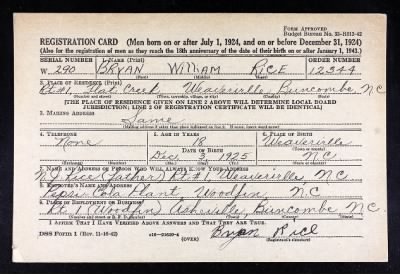 FORM APPROVED
Budget Bureau No. 33-R012-42
REGISTRATION CARD (Men born on or after July 1, 1924, and on or before December 31, 1924)
(Also for the registration of men as they reach the 18th anniversary of the date of their birth on or after January 1, 1943.)
SERIAL NUMBER 1. NAME (Print) ORDER NUMBER
W. 290 BRYAN WILLIAM RICE 12344
(First) (Middle) (Last)
2. PLACE OF RESIDENCE (Print)
Rt #1 Flat Creek Weaverville Buncombe N C
(Number and street) (Town, township, village, or city) (County) (State)
[THE PLACE OF RESIDENCE GIVEN ON LINE 2 ABOVE WILL DETERMINE LOCAL BOARD
JURISDICTION; LINE 2 OF REGISTRATION CERTIFICATE WILL BE IDENTICAL]
3. MAILING ADDRESS
Same
[Mailing address if other than place indicated on line 2. If same, insert word same]
4. TELEPHONE 5. AGE IN YEARS 6. PLACE OF BIRTH
None 18 Weaverville
DATE OF BIRTH (Town or county)
Dec 3 1925 N C
(Exchange) (Number) (Mo.) (Day) (Yr.) (State or country)
7. NAME AND ADDRESS OF PERSON WHO WILL ALWAYS KNOW YOUR ADDRESS
Rice (father) Rt #1 Weaverville N C
8. EMPLOYER'S NAME AND ADDRESS
Pepsi Cola Plant Woodfin, N C
9. PLACE OF EMPLOYMENT OR BUSINESS
Rt. 1 (Woodfin) Asheville, Buncombe N C
(Number and street or R. F. D. number) (Town) (County) (State)
I AFFIRM THAT I HAVE VERIFIED ABOVE ANSWERS AND THAT THEY ARE TRUE.
DSS Form 1 (Rev. 11-16-42) (OVER) Bryan Rice
(Registrant's signature)